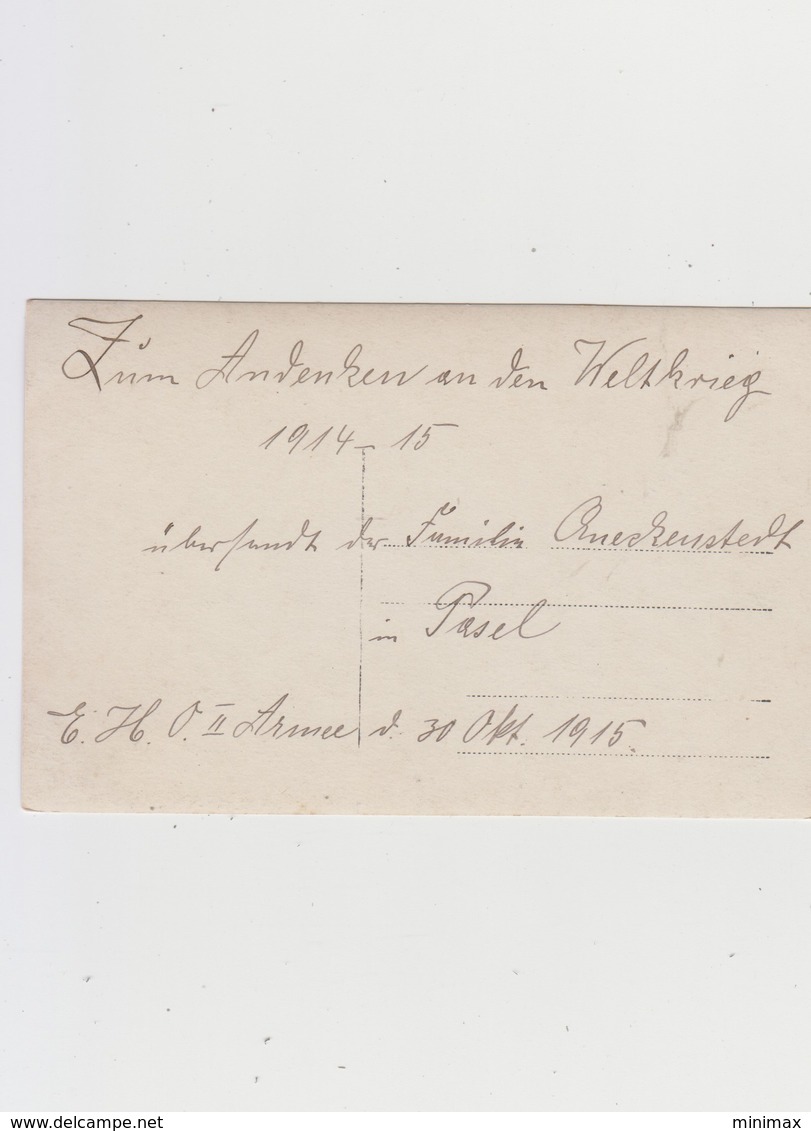 Zum Andenken an den Weltkrieg
1914-15
übersandt der Familie
in Pasel
E. H. O. II Armee d. 30 Okt. 1915.
delcampe.net
minimax